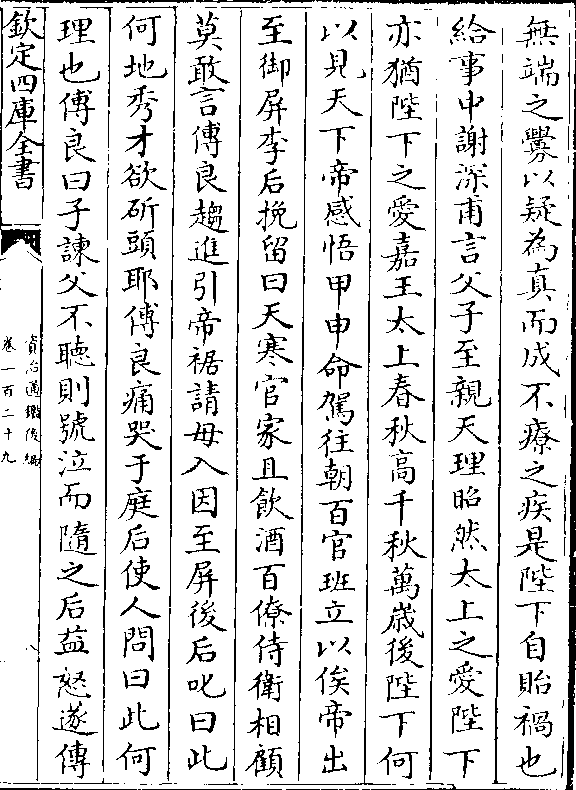 無端之釁以疑為真而成不療之疾是陛下自貽禍也
給事中謝深甫言父子至親天理昭然太上之愛陛下
亦猶陛下之愛嘉王太上春秋高千秋萬歳後陛下何
以見天下帝感悟甲申命駕往朝百官班立以俟帝出
至御屏李后挽留曰天寒官家且飲酒百僚侍衛相顧
莫敢言傅良趨進引帝裾請毋入因至屏後后叱曰此
何地秀才欲斫頭耶傅良痛哭于庭后使人問曰此何
理也傅良曰子諫父不聽則號泣而隨之后益怒遂傳
欽定四庫全書
資治通鑑後編
卷一百二十九
八